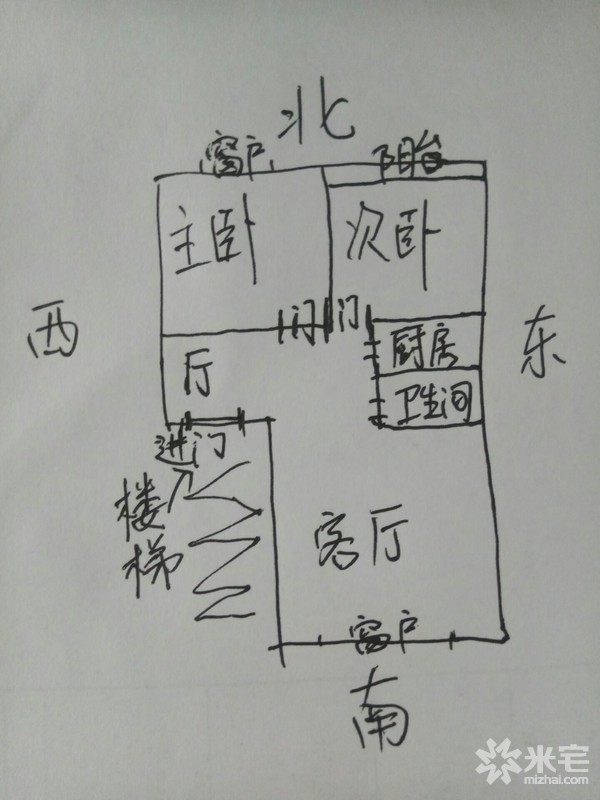 北
窗户
阳台
主卧
次卧
门
门
西
厨房
东
厅
卫生间
进门
楼梯
客厅
窗户
南
米宅
mizhai.com